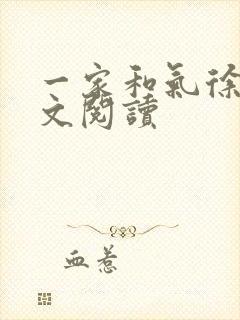 一家和氣徐
文閱讀
血惹